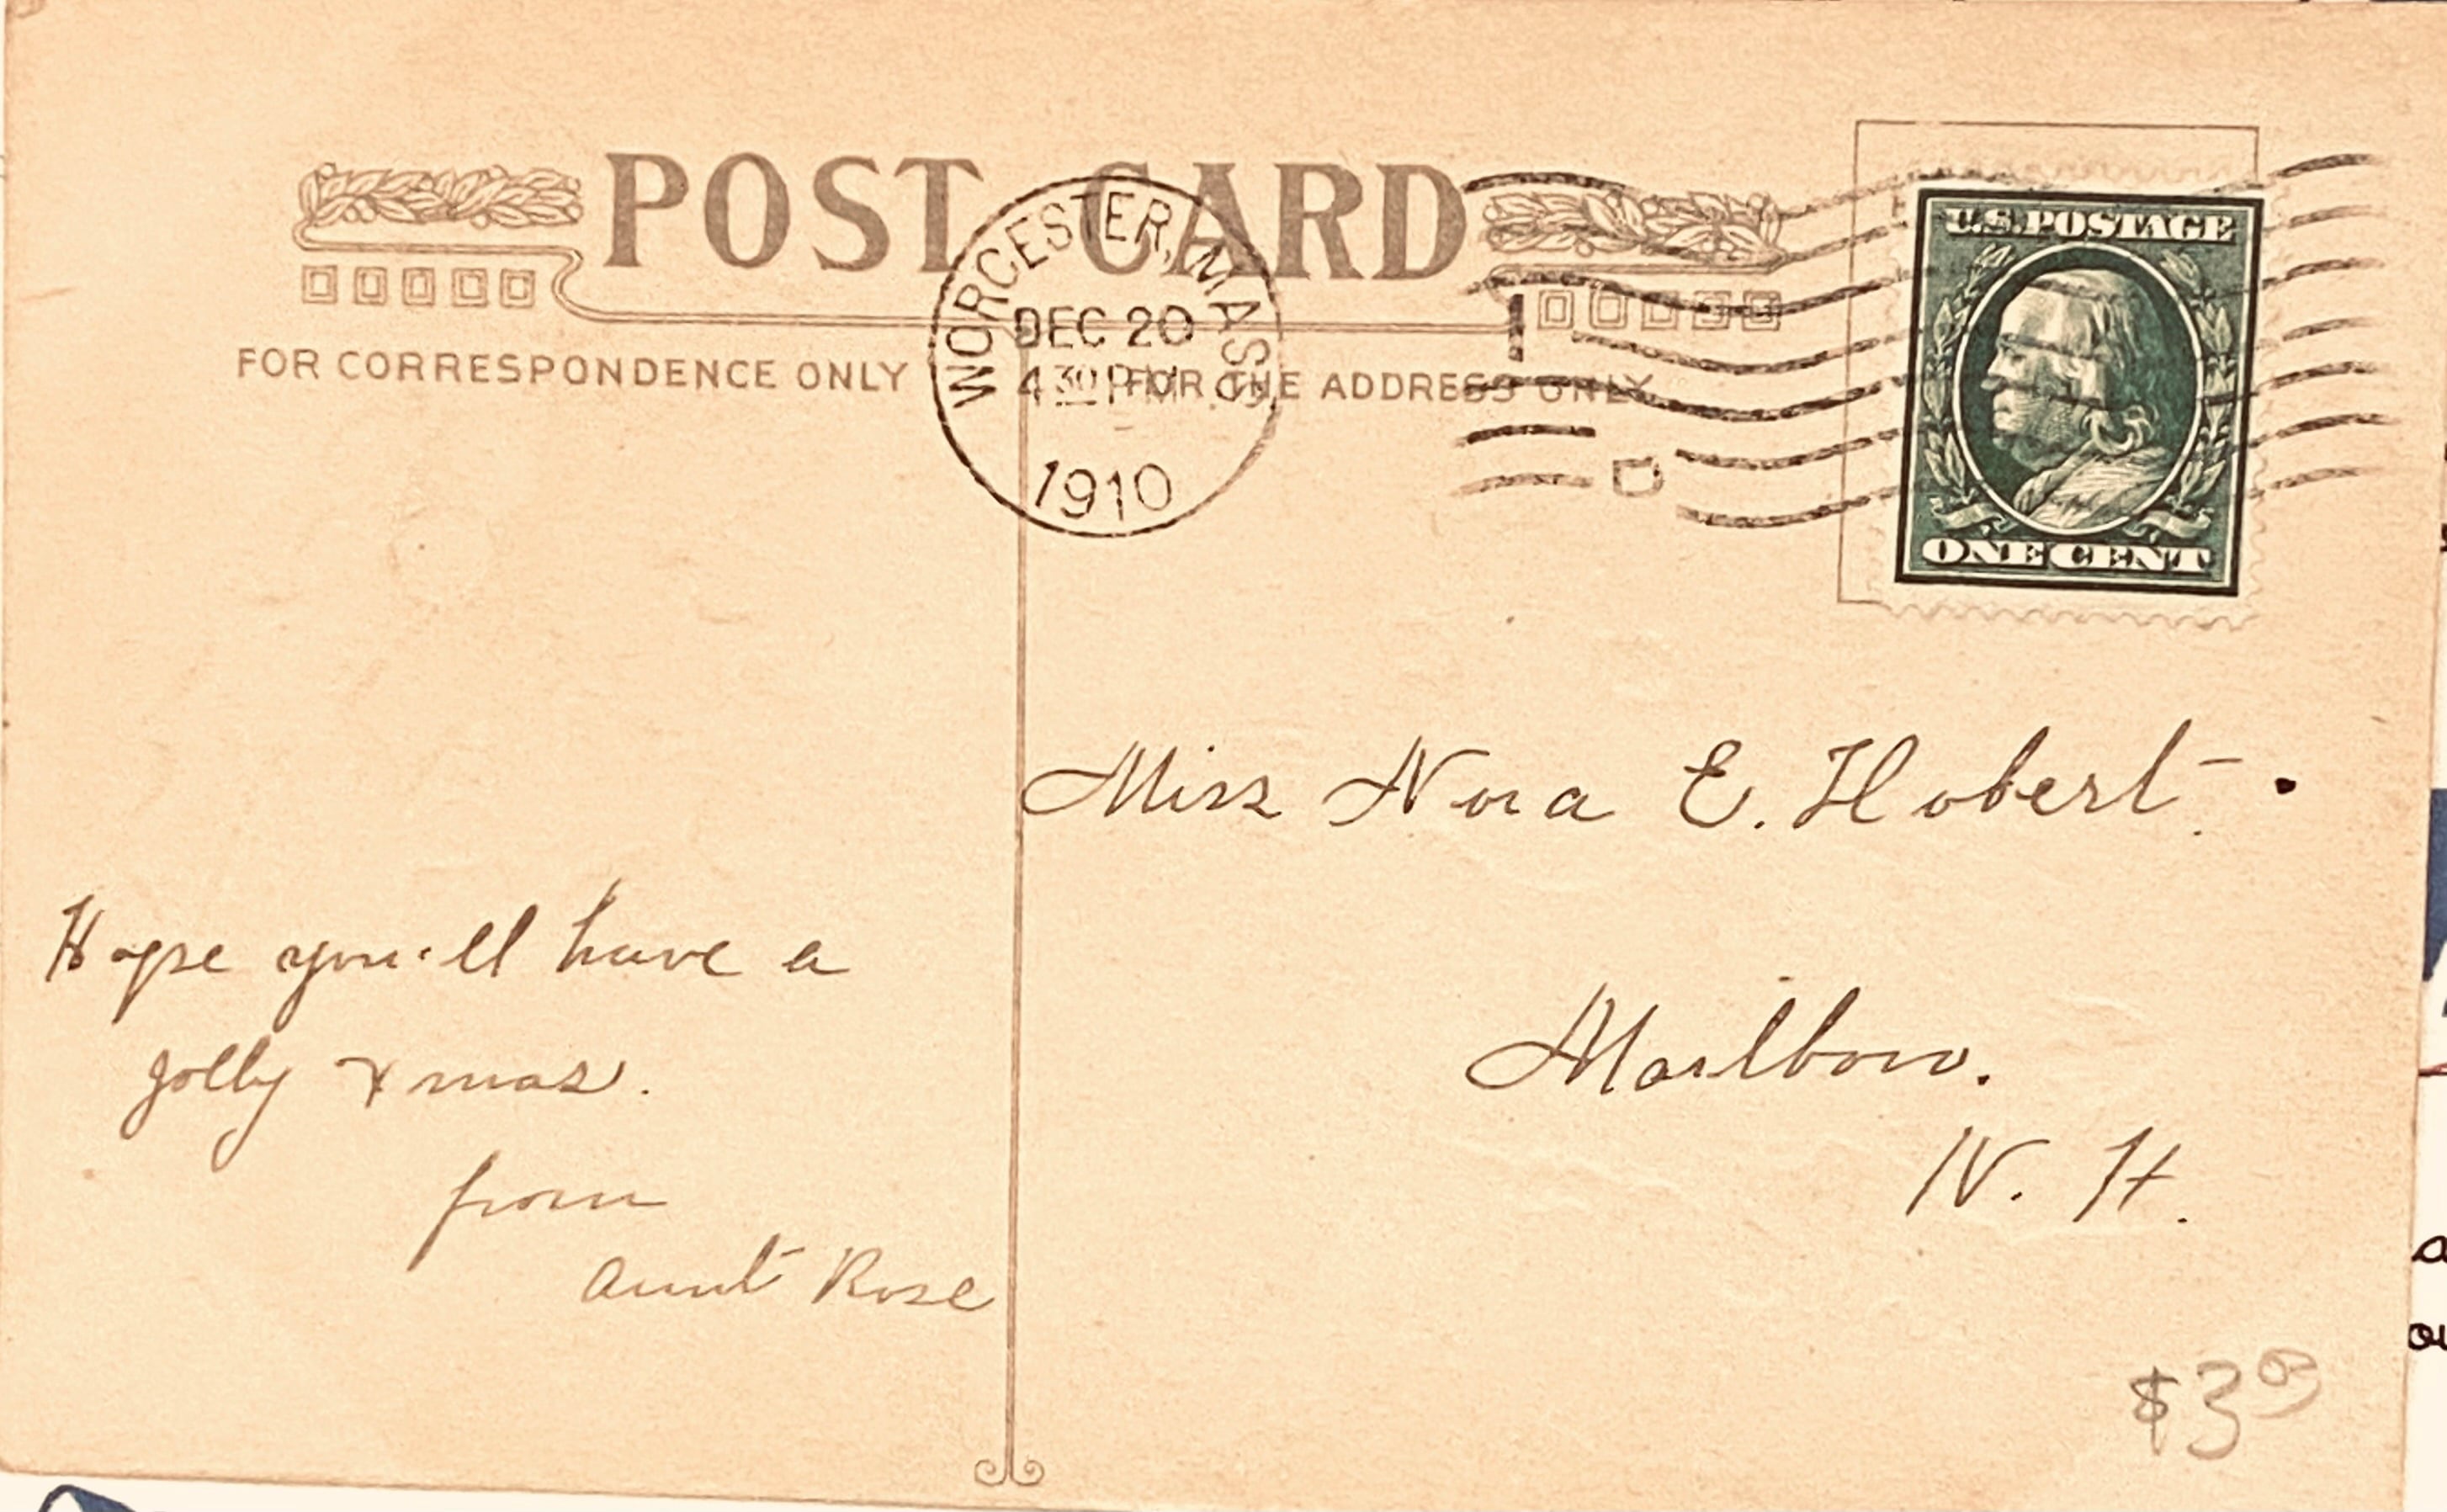 POST CARD
FOR CORRESPONDENCE ONLY
FOR THE ADDRESS ONLY
WORCESTER, MASS.
DEC 20
4 30 PM
1910
1
D
U.S. POSTAGE
ONE CENT
Miss Nora E. Hobert.
Marlboro.
N. H.
Hope you'll have a
jolly Xmas.
from
Aunt Rose
$3